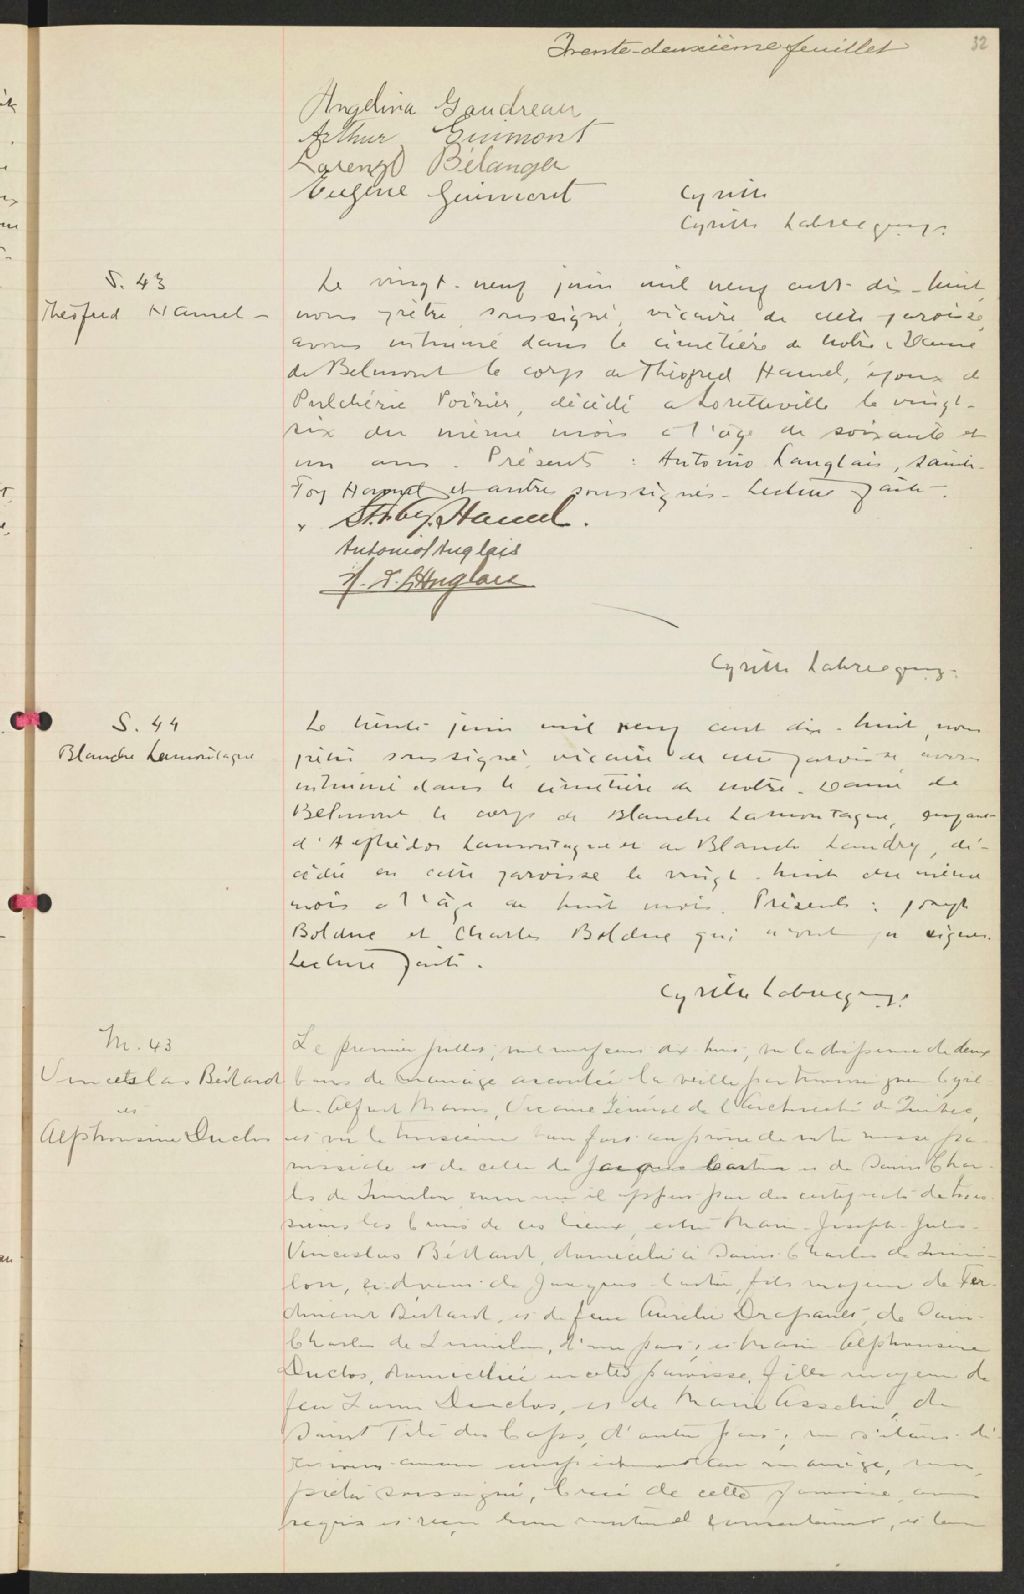 Trente-deuxième feuillet
32
Angelina Gaudreau
Arthur Guimont
Lorenzo Bélanger
Eugène Guimont
Cyrille
Cyrille Labrecque, ptre.
S. 43
Théofred Hamel
Le vingt-neuf juin mil neuf cent dix-huit,
nous prêtre soussigné, vicaire de cette paroisse,
avons inhumé dans le cimetière de Notre-Dame
de Belmont le corps de Théofred Hamel, époux de
Pulchérie Poirier, décédé à Loretteville le vingt-
six du même mois à l'âge de soixante et
un ans. Présents : Antonio Langlais, Sainte-
Foy Hamel et autres soussignés. Lecture faite.
St. Foy. Hamel.
Antonio Langlais
Langlais
Cyrille Labrecque, ptre.
S. 44
Blanche Lamontagne
Le trente juin mil neuf cent dix-huit, nous
prêtre soussigné, vicaire de cette paroisse, avons
inhumé dans le cimetière de Notre-Dame de
Belmont le corps de Blanche Lamontagne, enfant
d' Lamontagne et de Blanche Landry, dé-
cédée en cette paroisse le vingt-huit du même
mois à l'âge de huit mois. Présents : Joseph
Bolduc et Charles Bolduc qui n'ont pu signer.
Lecture faite.
Cyrille Labrecque, ptre.
M. 43
Vinceslas Bédard
et
Alphonsine Duclos
Le premier juillet, mil neuf cent dix huit, vu la dispense de deux
bans de mariage accordée la veille par Monseigneur Cyril-
le-Alfred Marois, Vicaire Général de l'Archevêché de Québec,
et vu la troisième ban fait au prône de notre messe pa-
roissiale et de celle de Jacques Cartier et de Saint Char-
les de Limoilou comme il appert par des certificats de
bans de ces lieux, entre Marie-Joseph-Jules-
Vinceslas Bédard, domicilié à Saint Charles de Limoi-
lou, ci-devant de Jacques Cartier, fils majeur de Fer-
dinand Bédard, et de feue Aurélie Drapeau, de Saint
Charles de Limoilou, d'une part; et Marie-Alphonsine
Duclos, domiciliée en cette paroisse, fille majeure de
feu Duclos, et de Marie Asselin, de
Saint Tite des Caps, d'autre part; ne s'étant dé-
couvert aucun empêchement au mariage, nous,
prêtre soussigné, Curé de cette paroisse, avons
requis et reçu leur mutuel consentement, et leur